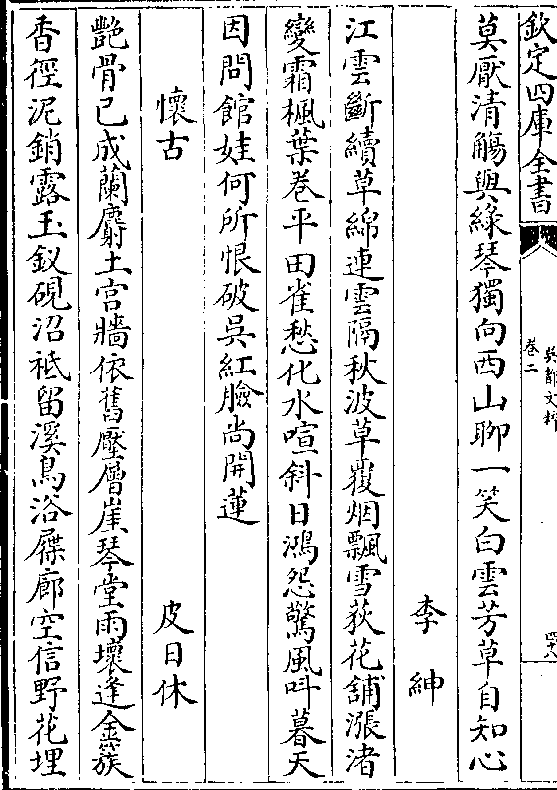 欽定四庫全書
吳都文粹
卷二
四十八
莫厭清觴與綠琴獨向西山聊一笑白雲芳草自知心
李紳
江雲斷續草綿連雲隔秋波草覆烟飄雪荻花舖漲渚
變霜楓葉卷平田雀愁化水喧斜日鴻怨驚風呌暮天
因問館娃何所恨破吳紅臉尚開蓮
懷古
皮日休
艷骨已成蘭麝土宫牆依舊壓層崖琴堂雨壞逢金簇
香徑泥銷露玉釵硯沼祗留溪鳥浴屧廊空信野花埋